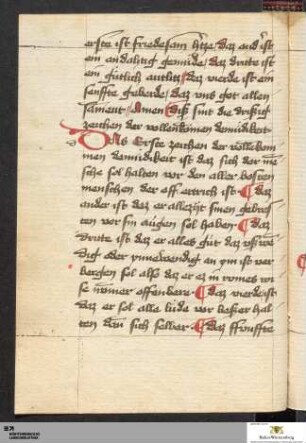 erste ist friedesam hertze daz ander ist
ein andahtig gemüde daz dritte ist
ein gütlich antlitz daz vierde ist ein
senffte geberde daz uns got allen
sament Amen Diß sint die drißig
zeichen der vollenkomen demüdikeit
Das Erste zeichen der vollekom
men demüdikeit ist daz sich der me
sche sol halten vor den aller bosten
menschen der off ertrich ist Daz
ander ist daz er allezijt sinen gebres
ten vor sin augen sol haben Daz
dritte ist daz er alles güt daz
oder ynnewendig an ym ist ver
bergen sol also daz er ez in
se nÿmer offenbere Daz vierde ist
daz er sol alle lüde vor beßer hal
ten dan sich selber Daz funffte